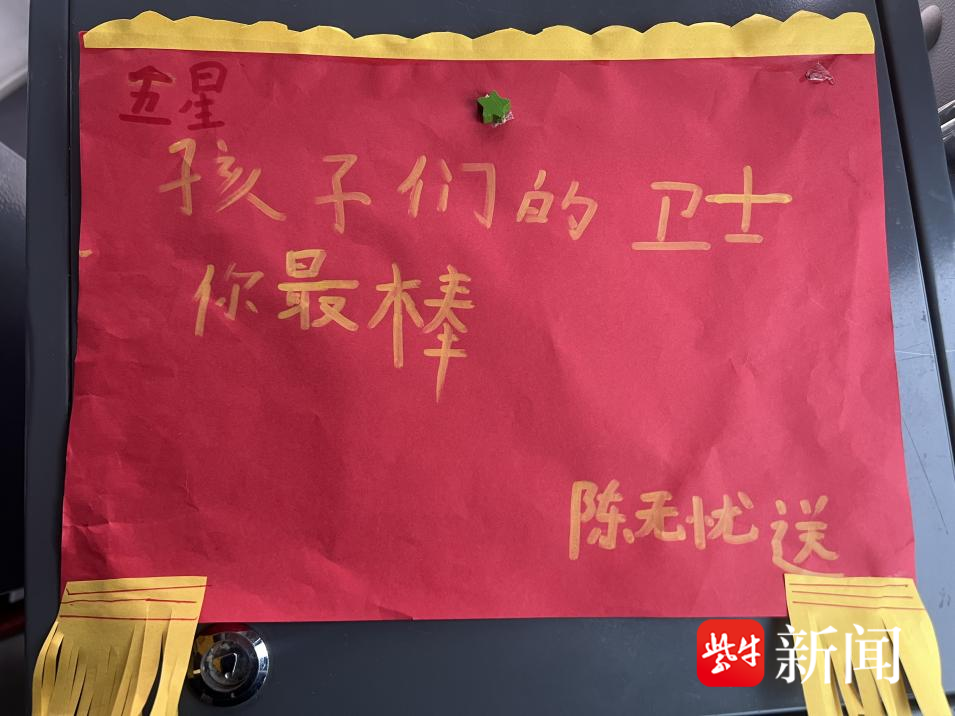 五星
孩子们的卫士
你最棒
陈无忧送
紫牛新闻